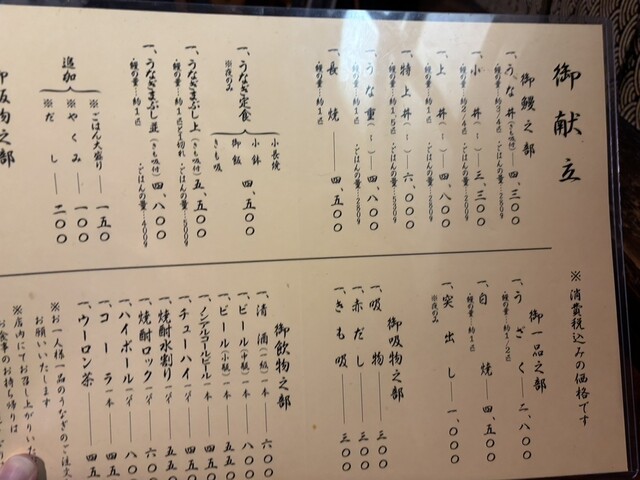 御献立
※消費税込みの価格です
御鰻之部
一、うな丼(きも吸付)――四、三〇〇
・鰻の量…約3/4匹 ・ごはんの量…280g
一、小丼(〃)――三、三〇〇
・鰻の量…約2/4匹 ・ごはんの量…200g
一、上丼(〃)――四、八〇〇
・鰻の量…約1匹 ・ごはんの量…280g
一、特上丼(〃)――六、〇〇〇
・鰻の量…約1.5匹 ・ごはんの量…530g
一、うな重(〃)――四、八〇〇
・鰻の量…約1匹 ・ごはんの量…280g
一、長焼――四、五〇〇
・鰻の量…約1匹
一、うなぎ定食
※夜のみ
小長焼
小鉢
御飯
きも吸
四、五〇〇
一、うなぎまぶし上(きも吸付)――五、五〇〇
・鰻の量…約1匹と2切れ ・ごはんの量…500g
一、うなぎまぶし並(きも吸付)――四、八〇〇
・鰻の量…約1匹 ・ごはんの量…400g
追加
※ごはん大盛り――一五〇
※やくみ――一〇〇
※だし――二〇〇
御一品之部
一、うざく――二、八〇〇
・鰻の量…約1/2匹
一、白焼――四、五〇〇
・鰻の量…約1匹
一、突出し――一、〇〇〇
※夜のみ
御吸物之部
一、吸物――三〇〇
一、赤だし――三〇〇
一、きも吸――三〇〇
御飲物之部
一、清酒(一級)一本――六〇〇
一、ビール(中瓶)一本――八〇〇
一、ビール(小瓶)一本――五五〇
一、ノンアルコールビール一本――四五
一、チューハイ――四五
一、焼酎水割り――五五
一、焼酎ロック――六〇
一、ハイボール――八〇
一、コーラ一本――四五
一、ウーロン茶――四五
※お一人様一品のうなぎのご注文
お願いいたします
※店内にてお召し上がりいた
お食事のお持ち帰りは